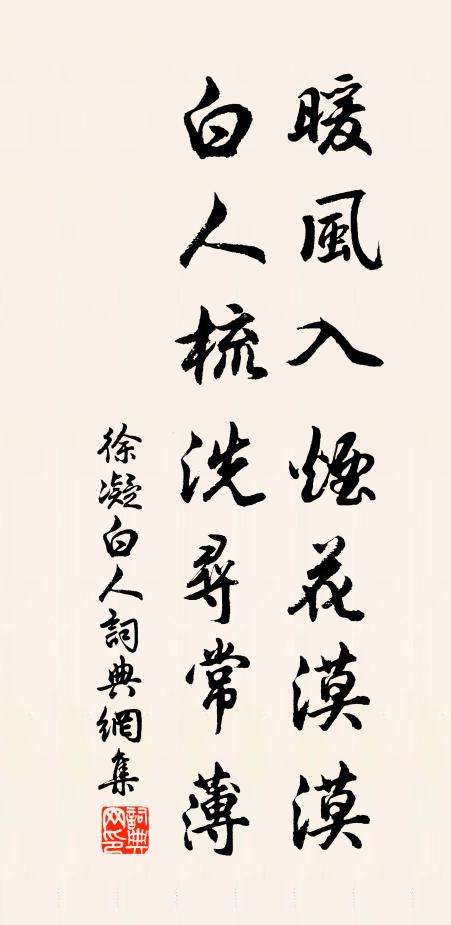 暖風入煙花漠漠
白人梳洗尋常薄
徐凝白人詞典網集
詞典网印